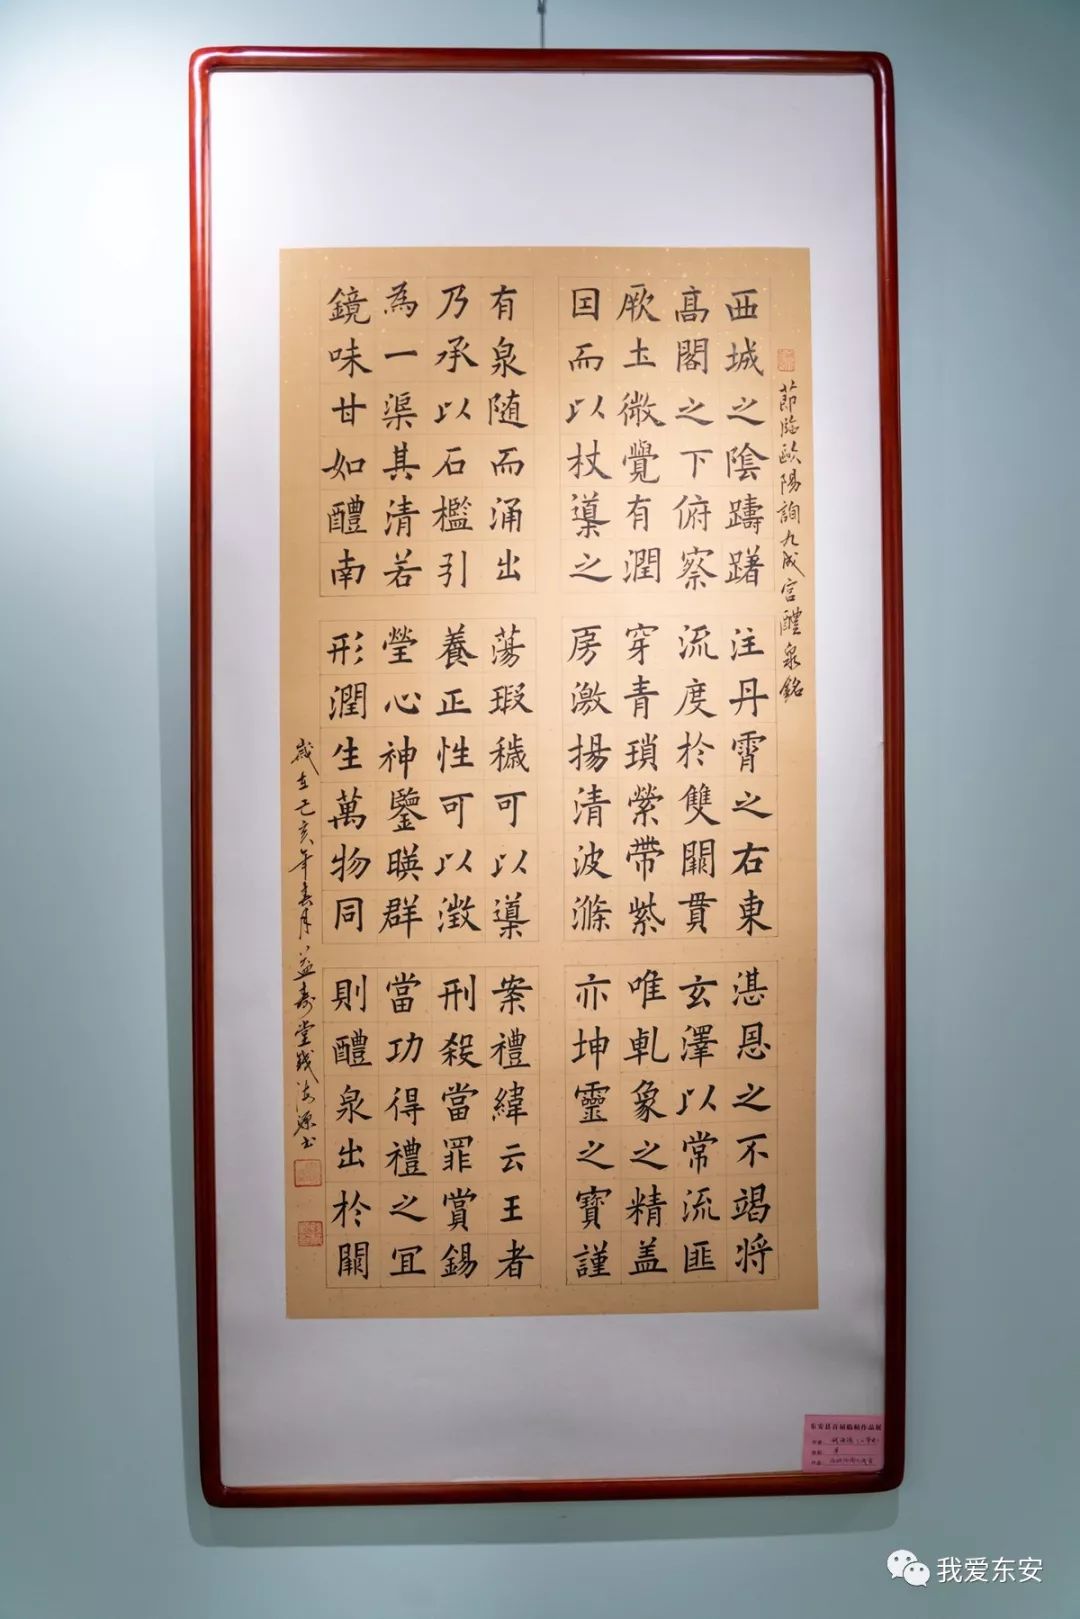 節臨歐陽詢九成宮醴泉銘
西城之陰躊躇
高閣之下俯察
厥土微覺有潤
因而以杖導之
有泉随而涌出
乃承以石檻引
為一渠其清若
鏡味甘如醴南
注丹霄之右東
流度於雙闕貫
穿青瑣縈帶紫
房激揚清波滌
蕩瑕穢可以導
養正性可以澂
瑩心神鑒暎群
形潤生萬物同
湛恩之不竭将
玄澤以常流匪
唯乹象之精盖
亦坤靈之寶謹
案禮緯云王者
刑殺當罪賞錫
當功得禮之宜
則醴泉出於闕
歲在己亥年春月益壽堂海源書
东安县首届临帖作品展
我爱东安